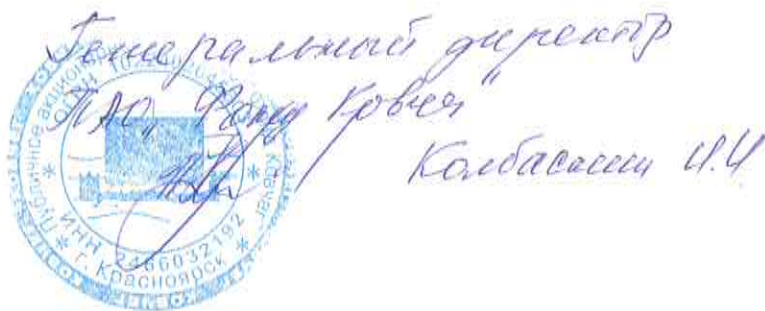 Генеральный директор
ПАО „Фонд Ковчег"
Колбасин И.И
Публичное акционерное
ОГРН
Ковчег
ИНН 2466032192
г. Красноярск